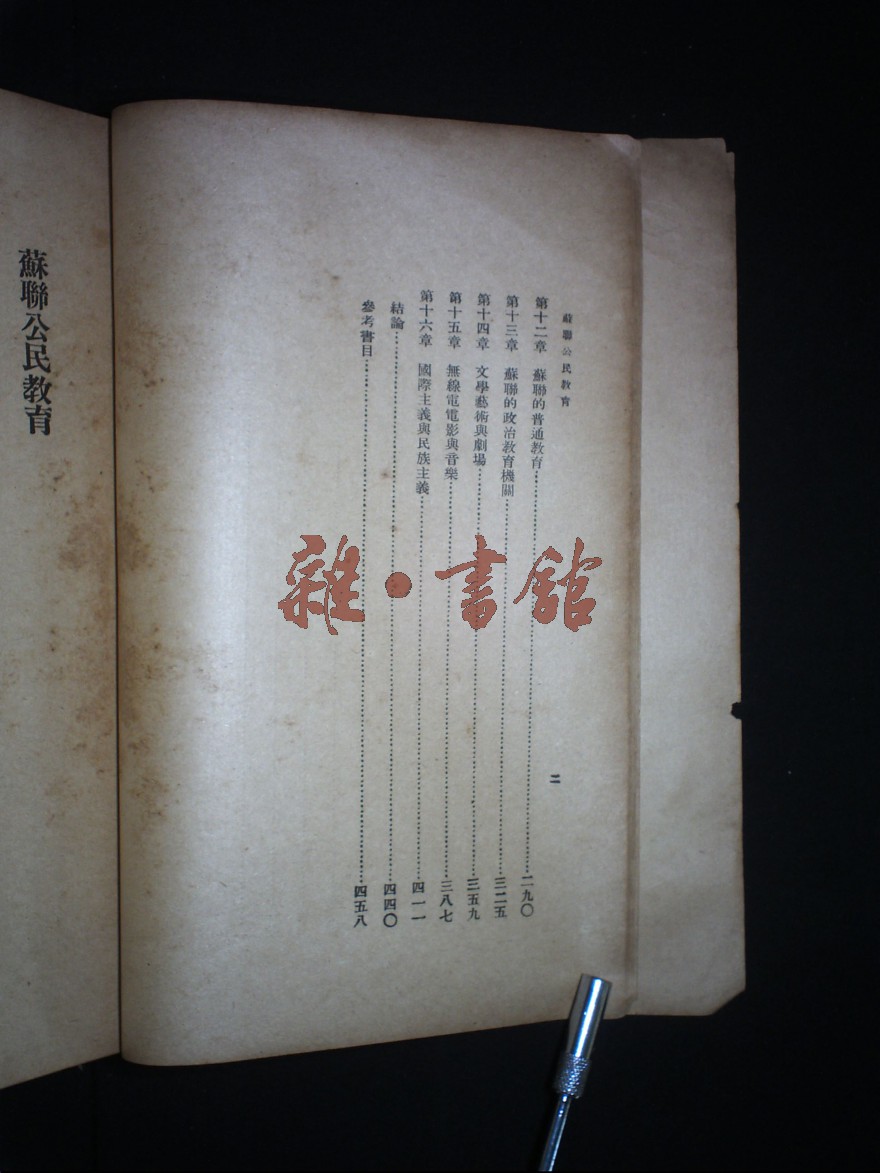 蘇聯公民教育
第十二章　蘇聯的普通教育……二九〇
第十三章　蘇聯的政治教育機關……三二五
第十四章　文學藝術與劇場……三五九
第十五章　無線電電影與音樂……三八七
第十六章　國際主義與民族主義……四一一
結論……四四〇
參考書目……四五八
二
蘇聯公民教育
雜·書館